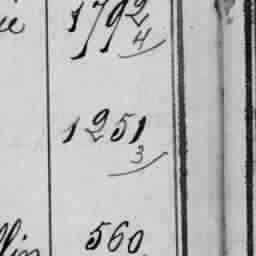 1792
4
1251
3
560